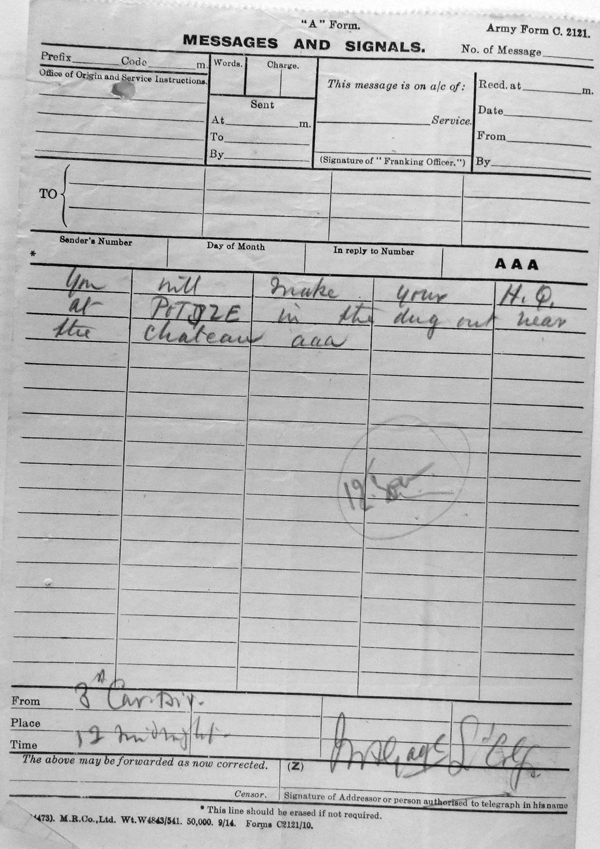 "A" Form.
Army Form C. 2121.
MESSAGES AND SIGNALS.
No. of Message
Prefix Code m.
Office of Origin and Service Instructions.
Words. Charge.
Sent
At m.
To
By
This message is on a/c of:
Service.
(Signature of "Franking Officer.")
Recd. at m.
Date
From
By
TO
Sender's Number Day of Month In reply to Number AAA
*
You will make your H.Q.
at POTIJZE in the dug out near
the chateau aaa
12
From 3rd Cav. Div.
Place
Time 12 midnight.
Lt Col
The above may be forwarded as now corrected. (Z)
Censor. Signature of Addressor or person authorised to telegraph in his name
* This line should be erased if not required.
4473). M.R.Co., Ltd. Wt. W4843/541. 50,000. 9/14. Forms C2121/10.